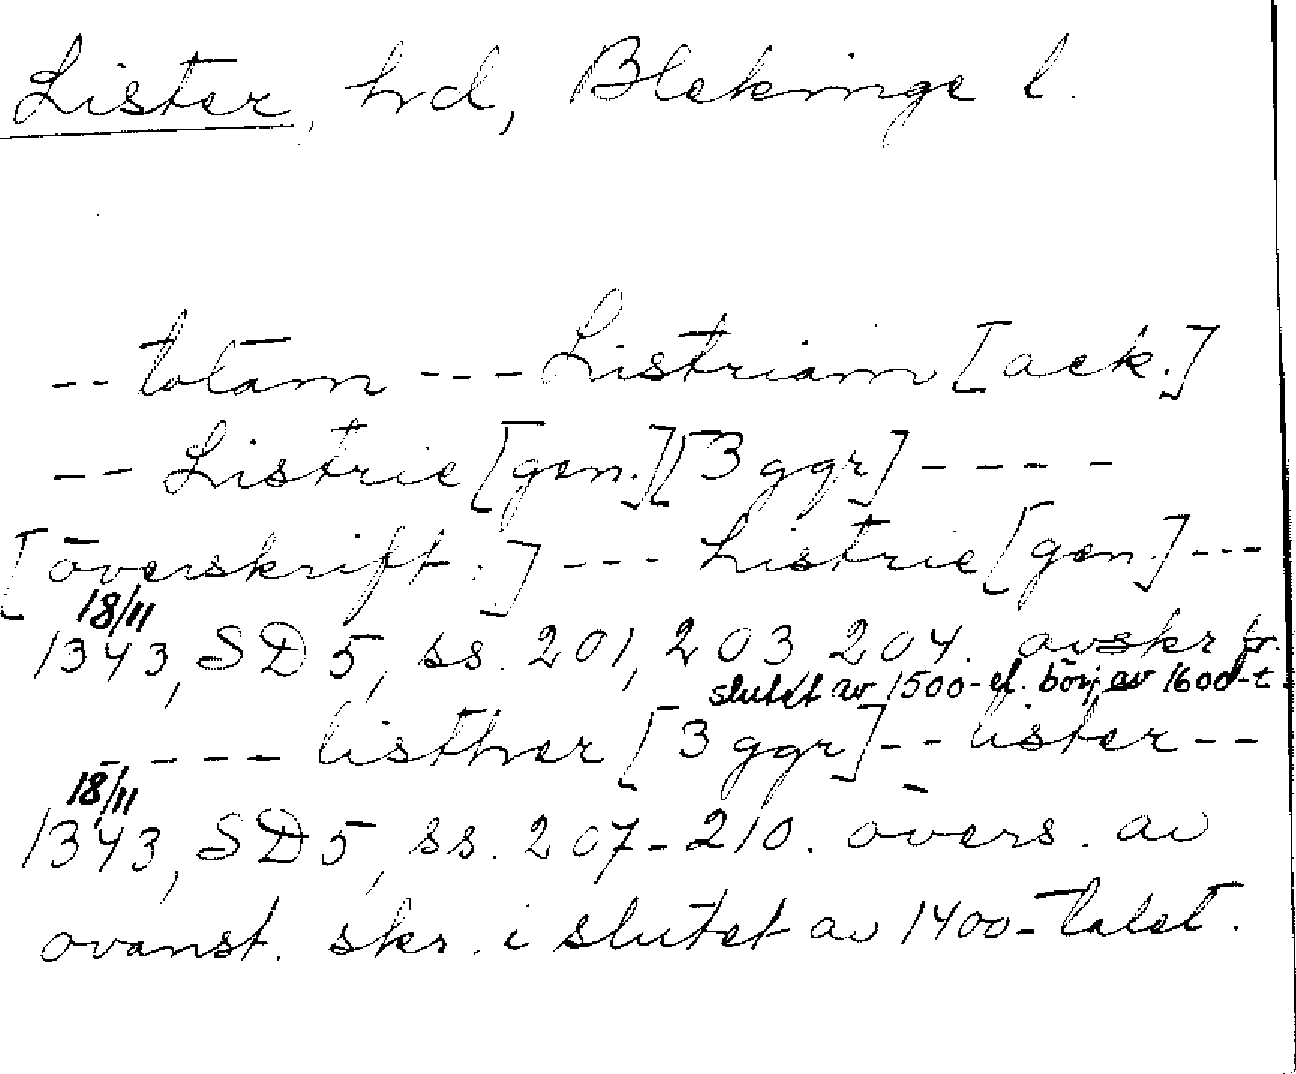 Lister, hd, Blekinge l.
-- totam --- Listriam [ack.]
-- Listrie [gen.] [3 ggr] ----
[överskrift.] --- Listrie [gen.] ---
18/11
1343, SD 5, ss. 201, 203 204. avskr fr.
slutet av 1500- el. börj av 1600-t.
----- listher [3 ggr] -- lister --
18/11
1343, SD 5, ss. 207-210. övers. av
ovanst. skr. i slutet av 1400-talet.